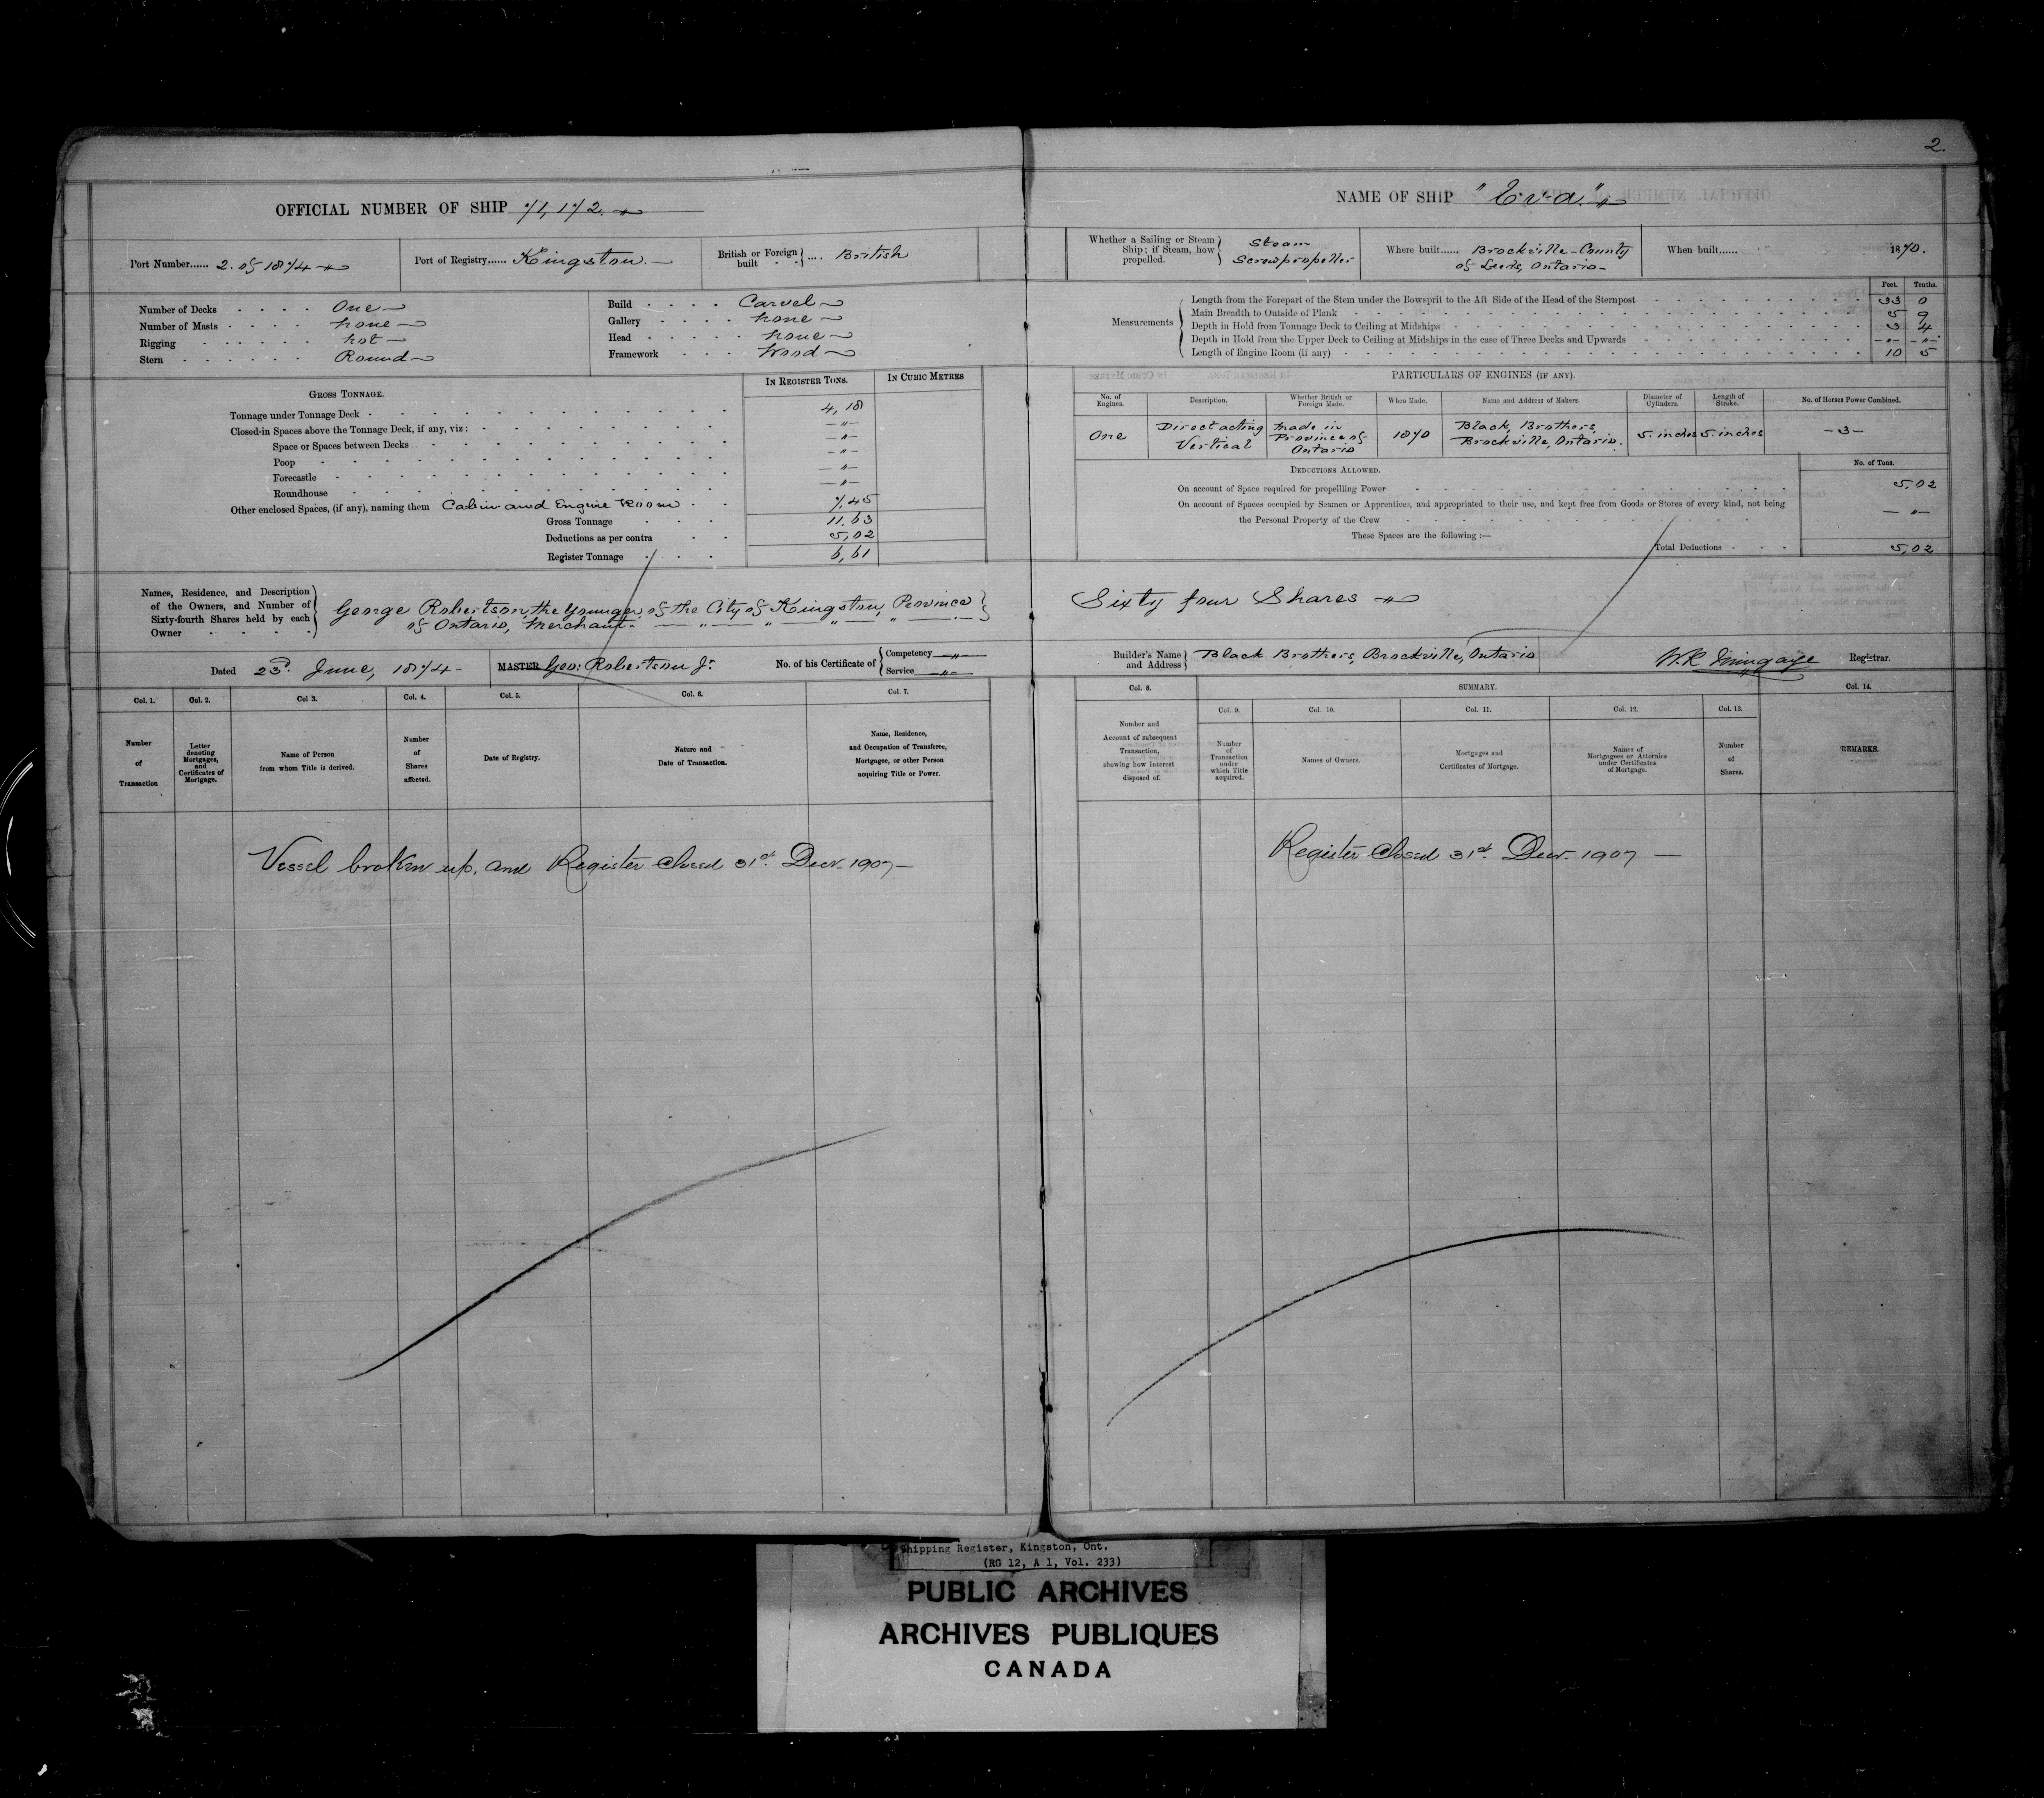 2.
OFFICIAL NUMBER OF SHIP 71,172.
NAME OF SHIP "Eva."
Port Number...... 2. of 1874
Port of Registry...... Kingston.
British or Foreign built } .... British
Whether a Sailing or Steam Ship; if Steam, how propelled. } Steam Screwpropeller
Where built...... Brockville County
of Leeds, Ontario
When built...... 1870.
Number of Decks . . . . One
Number of Masts . . . . None
Rigging . . . . Not
Stern . . . . Round
Build . . . . Carvel
Gallery . . . . None
Head . . . . None
Framework . . . . Wood
Measurements
Feet. Tenths.
Length from the Forepart of the Stem under the Bowsprit to the Aft Side of the Head of the Sternpost 33 0
Main Breadth to Outside of Plank 5 9
Depth in Hold from Tonnage Deck to Ceiling at Midships 3 4
Depth in Hold from the Upper Deck to Ceiling at Midships in the case of Three Decks and Upwards -"- -"-
Length of Engine Room (if any) 10 5
GROSS TONNAGE.
IN REGISTER TONS. IN CUBIC METRES
Tonnage under Tonnage Deck 4,18
Closed-in Spaces above the Tonnage Deck, if any, viz: -"-
Space or Spaces between Decks -"-
Poop -"-
Forecastle -"-
Roundhouse -"-
Other enclosed Spaces, (if any), naming them Cabin and Engine Room 7,45
Gross Tonnage 11,63
Deductions as per contra 5,02
Register Tonnage 6,61
PARTICULARS OF ENGINES (IF ANY).
No. of Engines. Description. Whether British or Foreign Made. When Made. Name and Address of Makers. Diameter of Cylinders. Length of Stroke. No. of Horses Power Combined.
One Direct acting Vertical Made in Province of Ontario 1870 Black, Brothers, Brockville, Ontario. 5. inches 5. inches -3-
DEDUCTIONS ALLOWED.
No. of Tons.
On account of Space required for propellling Power 5,02
On account of Spaces occupied by Seamen or Apprentices, and appropriated to their use, and kept free from Goods or Stores of every kind, not being
the Personal Property of the Crew -"-
These Spaces are the following :—
Total Deductions 5,02
Names, Residence, and Description of the Owners, and Number of Sixty-fourth Shares held by each Owner
George Robertson, the Younger, of the City of Kingston, Province
of Ontario, Merchant.
Sixty four Shares
Dated 23d. June, 1874
MASTER Geo: Robertson Jr.
No. of his Certificate of { Competency -"-
Service -"-
Builder's Name and Address } Black Brothers, Brockville, Ontario
Registrar.
Col. 1. Col. 2. Col 3. Col. 4. Col. 5. Col. 6. Col. 7.
Number of Transaction
Letter denoting Mortgages, and Certificates of Mortgage.
Name of Person from whom Title is derived.
Number of Shares affected.
Date of Registry.
Nature and Date of Transaction.
Name, Residence, and Occupation of Transferee, Mortgagee, or other Person acquiring Title or Power.
Col. 8. SUMMARY. Col. 14.
Col. 9. Col. 10. Col. 11. Col. 12. Col. 13.
Number and Account of subsequent Transaction, showing how Interest disposed of.
Number of Transaction under which Title acquired.
Names of Owners.
Mortgages and Certificates of Mortgage.
Names of Mortgagees or Attornies under Certificates of Mortgage.
Number of Shares.
REMARKS.
Vessel broken up, and Register Closed 31st. Decr. 1907
Register Closed 31st. Decr. 1907
Shipping Register, Kingston, Ont.
(RG 12, A 1, Vol. 233)
PUBLIC ARCHIVES
ARCHIVES PUBLIQUES
CANADA